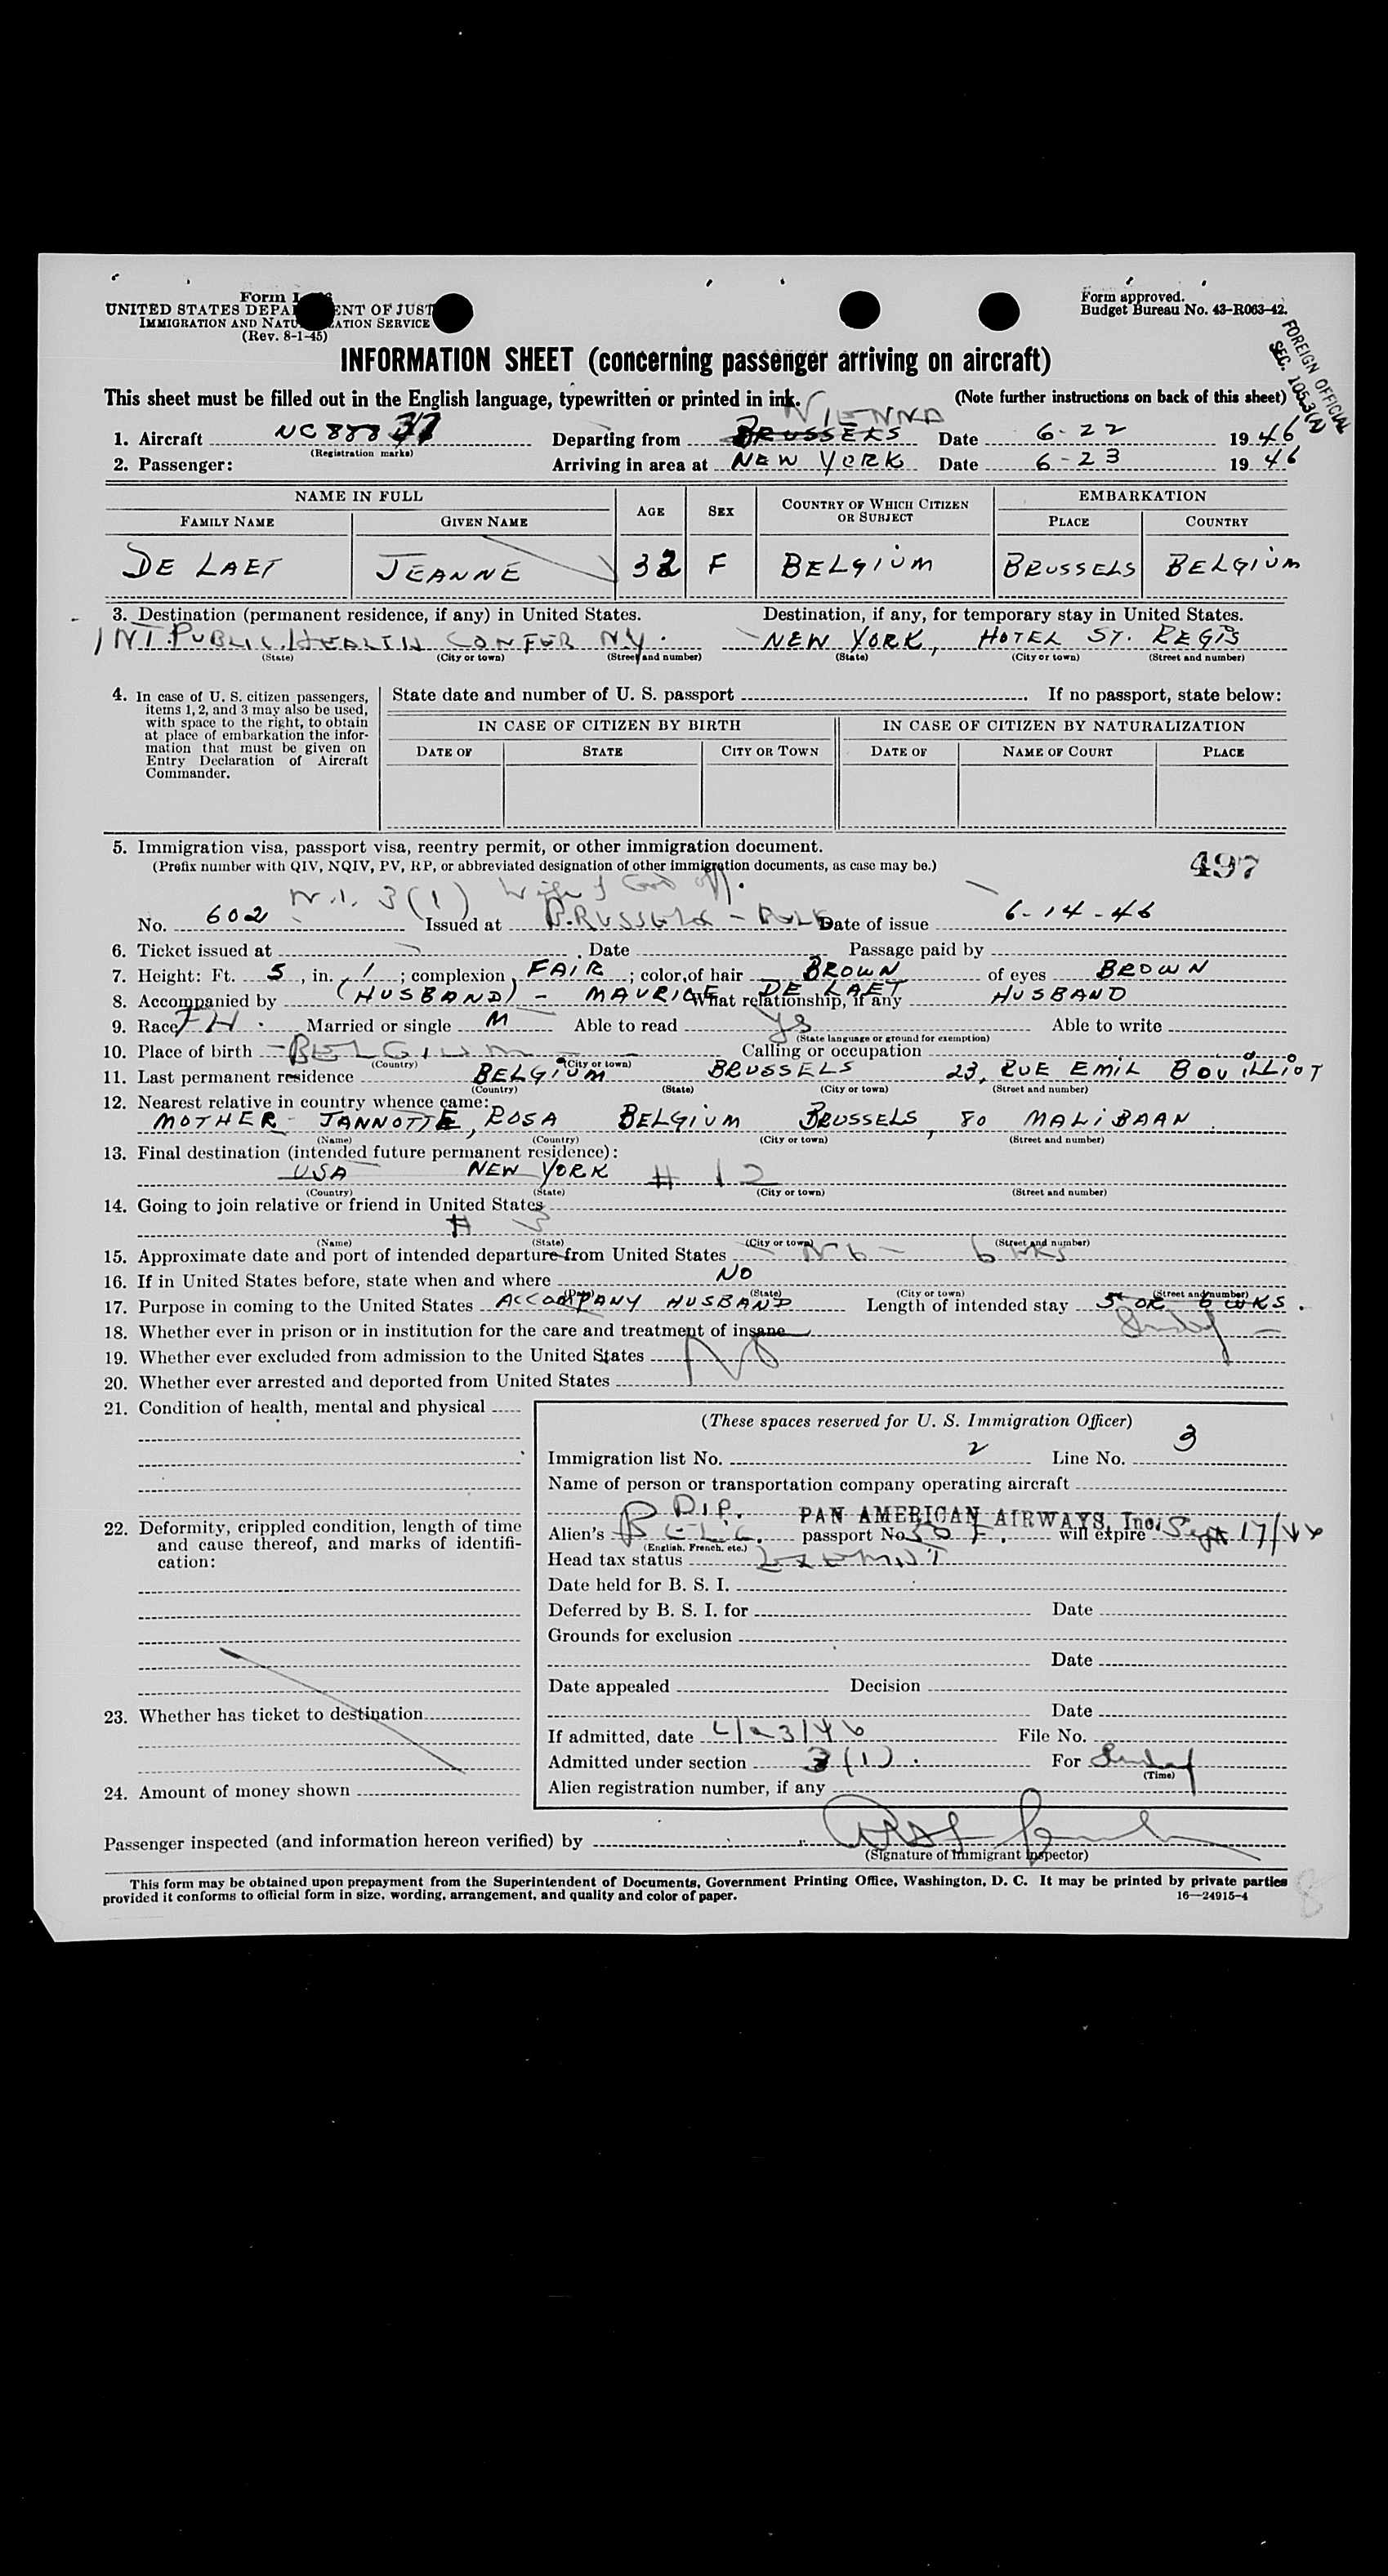 Form I
UNITED STATES DEPA ENT OF JUST
IMMIGRATION AND NATU ATION SERVICE
(Rev. 8-1-45)
Form approved.
Budget Bureau No. 43-R063-42.
FOREIGN OFFICIAL
SEC.
INFORMATION SHEET (concerning passenger arriving on aircraft)
This sheet must be filled out in the English language, typewritten or printed in ink. (Note further instructions on back of this sheet)
VIENNA
1. Aircraft NC 888 37 Departing from BRUSSELS Date 6-22 1946
(Registration marks)
2. Passenger: Arriving in area at NEW YORK Date 6-23 1946
NAME IN FULL AGE SEX COUNTRY OF WHICH CITIZEN OR SUBJECT EMBARKATION
FAMILY NAME GIVEN NAME PLACE COUNTRY
DE LAET JEANNE 32 F BELGIUM BRUSSELS BELGIUM
3. Destination (permanent residence, if any) in United States. Destination, if any, for temporary stay in United States.
INT. PUBLIC HEALTH CONFER N.Y. NEW YORK, HOTEL ST. REGIS
(State) (City or town) (Street and number) (State) (City or town) (Street and number)
4. In case of U. S. citizen passengers, items 1, 2, and 3 may also be used, with space to the right, to obtain at place of embarkation the information that must be given on Entry Declaration of Aircraft Commander.
State date and number of U. S. passport If no passport, state below:
IN CASE OF CITIZEN BY BIRTH IN CASE OF CITIZEN BY NATURALIZATION
DATE OF STATE CITY OR TOWN DATE OF NAME OF COURT PLACE
5. Immigration visa, passport visa, reentry permit, or other immigration document.
(Prefix number with QIV, NQIV, PV, RP, or abbreviated designation of other immigration documents, as case may be.)
497
3(1) Wife of
No. 602 Issued at BRUSSELS - BELG Date of issue 6-14-46
6. Ticket issued at Date Passage paid by
7. Height: Ft. 5, in. 1; complexion FAIR; color of hair BROWN of eyes BROWN
8. Accompanied by (HUSBAND) - MAURICE DE LAET What relationship, if any HUSBAND
9. Race Married or single M Able to read yes Able to write
(State language or ground for exemption)
10. Place of birth BELGIUM Calling or occupation
(Country) (City or town)
11. Last permanent residence BELGIUM BRUSSELS 23, RUE EMIL BOUILLIOT
(Country) (State) (City or town) (Street and number)
12. Nearest relative in country whence came:
MOTHER - JANNOTTE, ROSA BELGIUM BRUSSELS, 80 MALIBAAN
(Name) (Country) (City or town) (Street and number)
13. Final destination (intended future permanent residence):
USA NEW YORK # 12
(Country) (State) (City or town) (Street and number)
14. Going to join relative or friend in United States
# 3
(Name) (State) (City or town) (Street and number)
15. Approximate date and port of intended departure from United States 6 wks
16. If in United States before, state when and where NO
(Date) (State) (City or town) (Street and number)
17. Purpose in coming to the United States ACCOMPANY HUSBAND Length of intended stay 5 OR 6 WKS.
18. Whether ever in prison or in institution for the care and treatment of insane
19. Whether ever excluded from admission to the United States No
20. Whether ever arrested and deported from United States
21. Condition of health, mental and physical
(These spaces reserved for U. S. Immigration Officer)
Immigration list No. 2 Line No. 3
Name of person or transportation company operating aircraft
DIP. PAN AMERICAN AIRWAYS, Inc.
22. Deformity, crippled condition, length of time and cause thereof, and marks of identification:
Alien's BELG. passport No. will expire Sept 17/46
(English, French, etc.)
Head tax status EXEMPT
Date held for B. S. I.
Deferred by B. S. I. for Date
Grounds for exclusion
Date
Date appealed Decision
23. Whether has ticket to destination
Date
If admitted, date 6/23/46 File No.
Admitted under section 3(1). For
(Time)
24. Amount of money shown
Alien registration number, if any
Passenger inspected (and information hereon verified) by
(Signature of Immigrant Inspector)
This form may be obtained upon prepayment from the Superintendent of Documents, Government Printing Office, Washington, D. C. It may be printed by private parties
provided it conforms to official form in size, wording, arrangement, and quality and color of paper. 16—24915-4
8